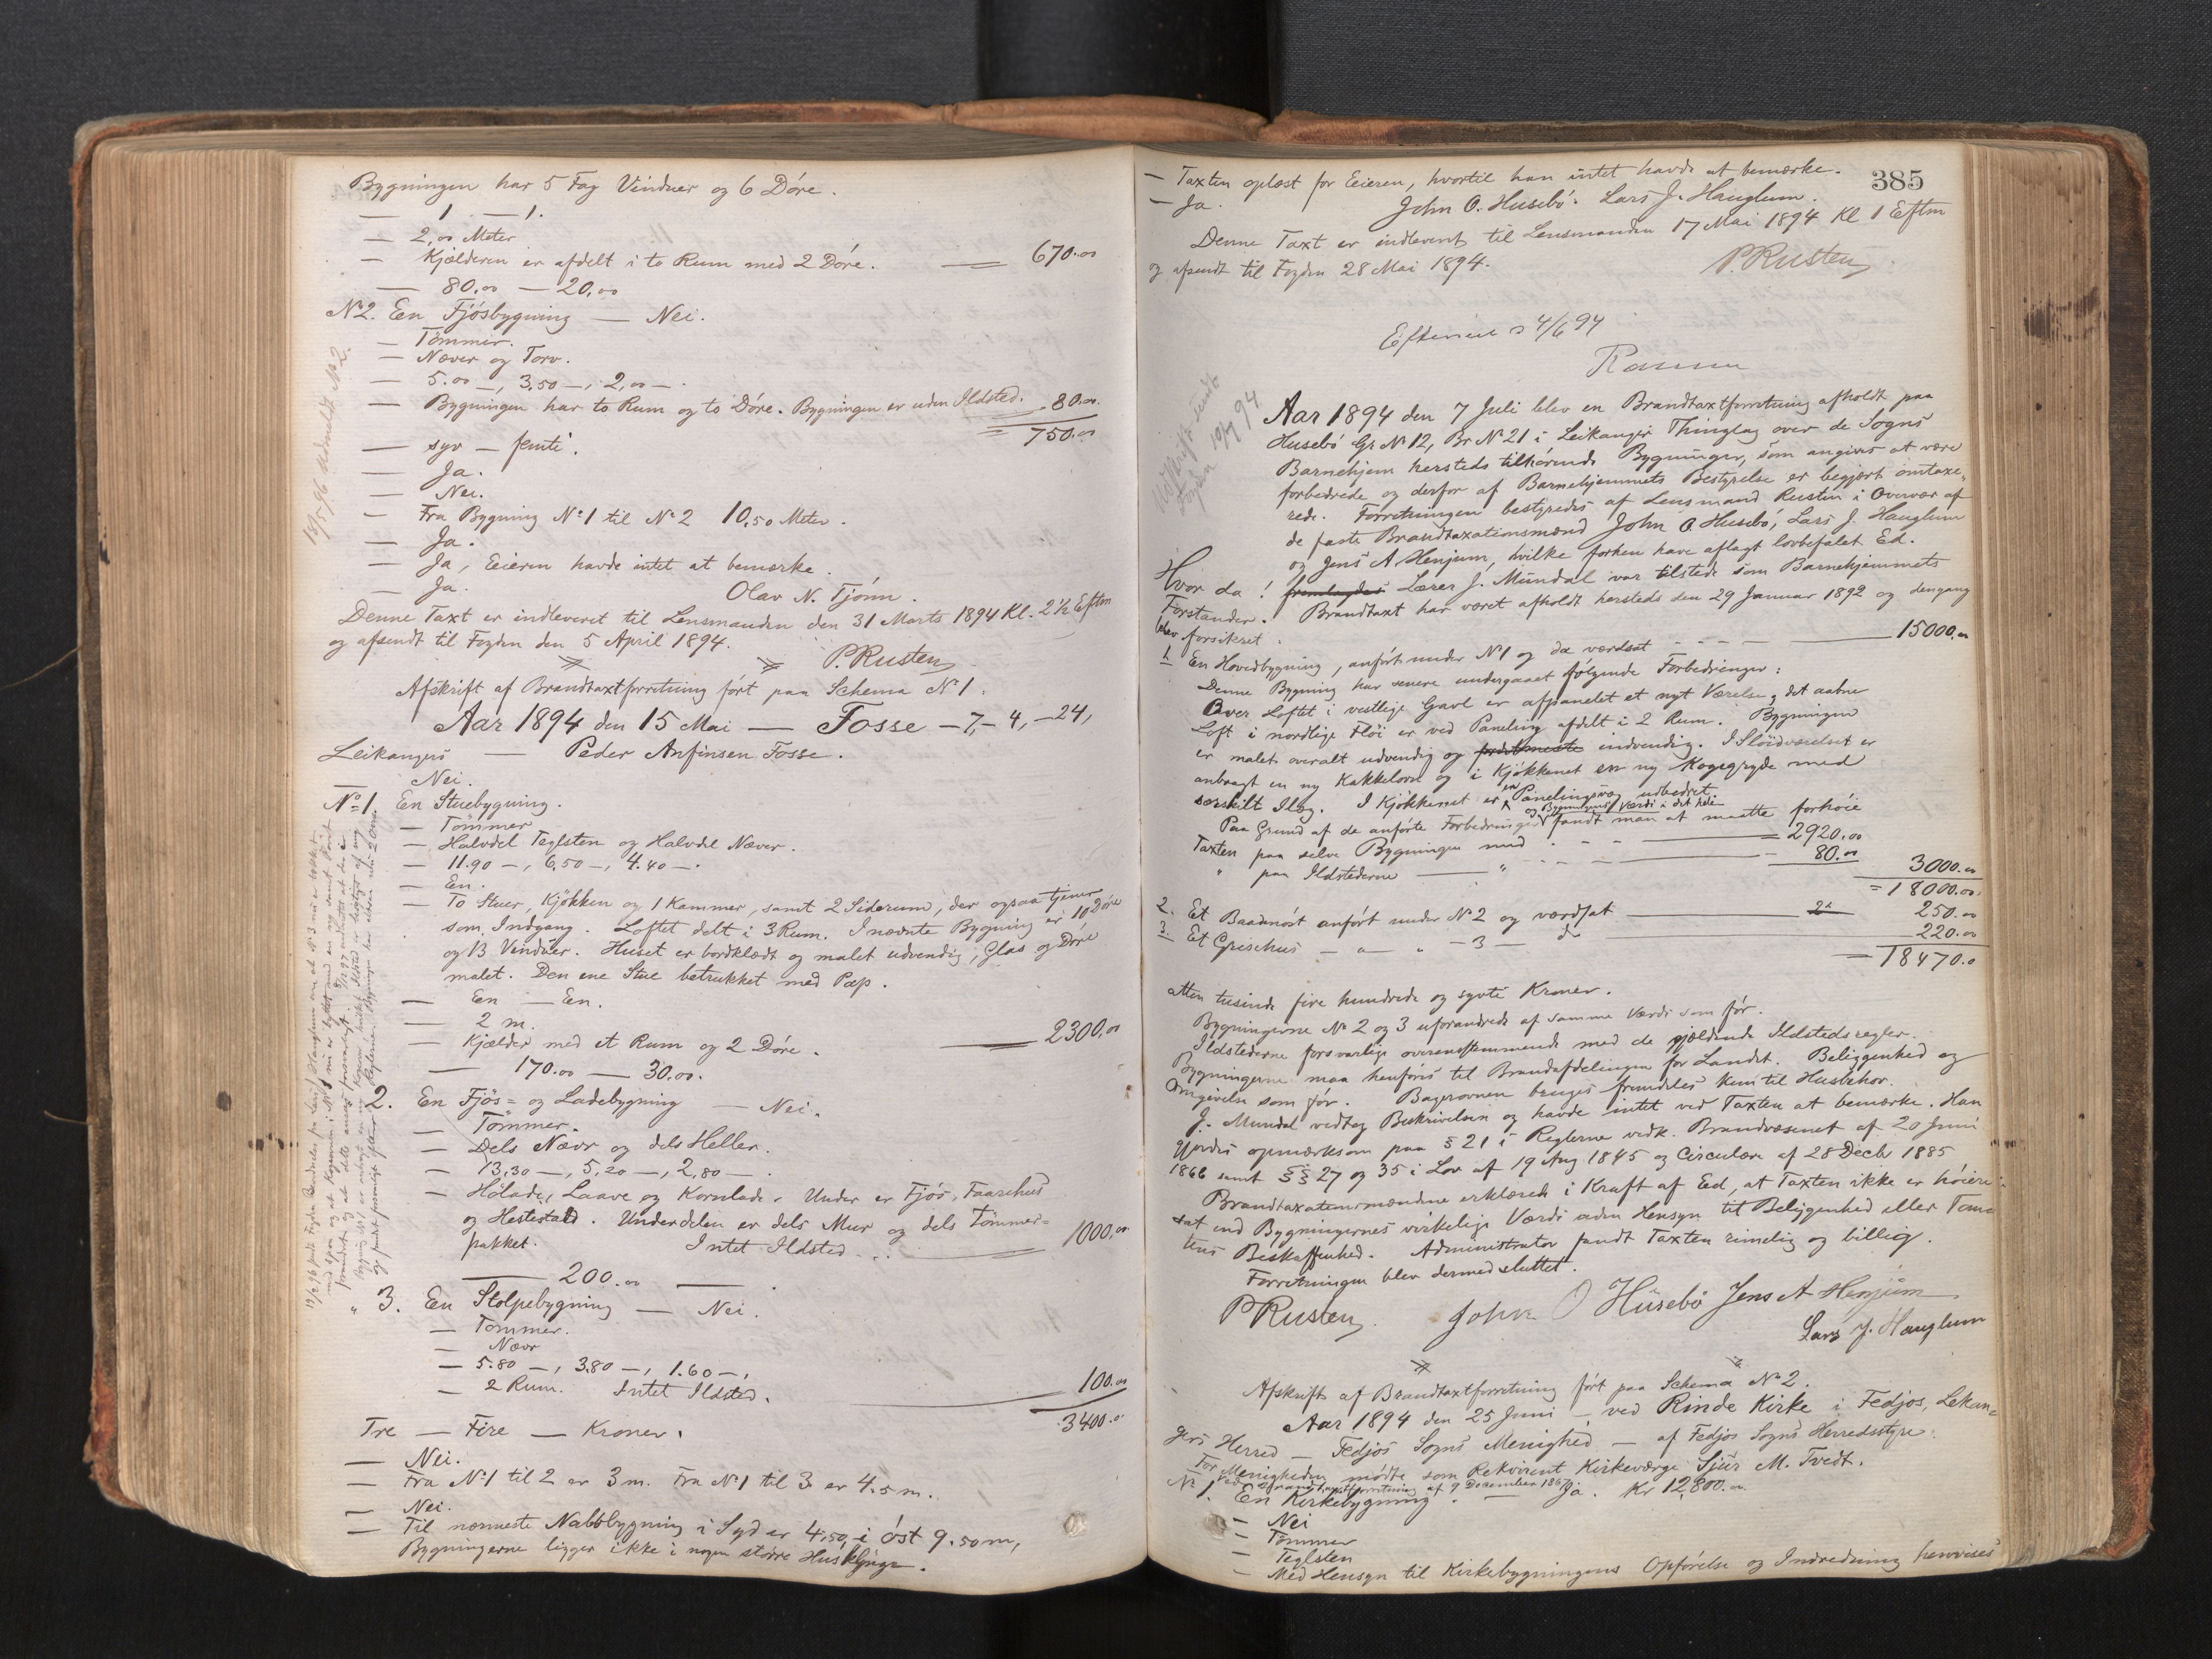 Bygningen har 5 Fag Vinduer og 6 Døre.
— 1 — 1.
— 2,00 Meter
— Kjælderen er afdelt i to Rum med 2 Døre. — 670.00
— 80.00 — 20,00
No 2. En Fjøsbygning — Nei.
— Tømmer.
— Næver og Torv.
— 5.00 —, 3.50 —, 2,00 —.
— Bygningen har to Rum og to Døre. Bygningen er uden Ildsted. 80.00
= 750.00
— syv — femti.
— Ja.
— Nei.
— Fra Bygning No 1 til No 2 10,50 Meter.
— Ja.
— Ja, Eieren havde intet at bemærke.
— Ja. Olav N. Tjønn.
Denne Taxt er indleveret til Lensmanden den 31 Marts 1894 Kl. 2 1/2 Eftm
og afsendt til Fogden den 5 April 1894.
P. Rusten
Afskrift af Brandtaxtforretning ført paa Schema No 1.
Aar 1894 den 15 Mai — Fosse — 7, — 4, — 24,
Leikangers — Peder Anfinsen Fosse.
Nei.
No 1. En Stuebygning.
— Tømmer
— Halvdel Teglsten og Halvdel Næver.
— 11.90 —, 6,50 —, 4.40 —.
— En.
— To Stuer, Kjøkken og 1 Kammer, samt 2 Siderum, der ogsaa tjener
som Indgang. Loftet delt i 3 Rum. I nævnte Bygning er 10 Døre
og 13 Vinduer. Huset er bordklædt og malet udvendig, Glas og Døre
malet. Den ene Stue betrukket med Pap.
— En — En.
— 2 m.
— Kjælder med et Rum og 2 Døre. — 2300,00
— 170.00 — 30.00.
2. En Fjøs= og Ladebygning — Nei.
— Tømmer.
— Dels Næver og dels Heller.
— 13,30 —, 5,20 —, 2,80 —.
— Hølade, Laave og Kornlade. Under er Fjøs, Faarehus
og Hestestald. Underdelen er dels Mur og dels Tømmer=
pakket. Intet Ildsted... 1000,00
— 200.00 —
" 3. En Stolpebygning — Nei.
— Tømmer.
— Næver
— 5.80 —, 3.80 —, 1.60 —,
— 2 Rum. Intet Ildsted. 100.00
3400.0
Tre — Fire — Kroner.
— Nei.
— Fra No 1 til 2 er 3 m. Fra No 1 til 3 er 4.5 m.
— Nei.
— Til nærmeste Nabobygning i Syd er 4,50, i øst 9.50 m,
Bygningerne ligger ikke i nogen større Husklynge.
385
— Taxten oplæst for Eieren, hvortil han intet havde at bemærke.
— Ja. John O. Husebø. Lars J. Hauglum.
Denne Taxt er indleveret til Lensmanden 17 Mai 1894 Kl 1 Eftm
og afsendt til Fogden 28 Mai 1894. P. Rusten
4/6 94
Aar 1894 den 7 Juli blev en Brandtaxtforretning afholdt paa
Husebø Gr No 12, Br No 21 i Leikanger Thinglag over de Sogns
Barnehjem hersteds tilhørende Bygninger, som angives at være
forbedrede og derfor af Barnehjemmets Bestyrelse er begjært omtaxe-
rede. Forretningen bestyredes af Lensmand Rusten i Overvær af
de faste Brandtaxationsmænd John O. Husebø, Lars J. Hauglum
og Jens A Henjum, hvilke forhen have aflagt lovbefalet Ed.
Hvor da! fremlagdes Lærer J. Mundal var tilstede som Barnehjemmets
Forstander. Brandtaxt har været afholdt hersteds den 29 Januar 1892 og dengang
blev forsikret:
1. En Hovedbygning, anført under No 1 og da værdsat — 15000.00
Denne Bygning har senere undergaaet følgende Forbedringer:
Over Loftet i vestlige Gavl er afpanelet et nyt Værelse, det aabne
Loft i nordlige Fløi er ved Paneling afdelt i 2 Rum. Bygningen
er malet overalt udvendig og indvendig. I Sløidværelset er
anbragt en ny Kakkelovn og i Kjøkkenet en ny Kogegryde med
særskilt Ildsg. I Kjøkkenet er en Panelingsvæg udbedret
og Bygningens Værdi i det hele
Paa Grund af de anførte Forbedringer fandt man at maatte forhøie
Taxten paa selve Bygningen med — 2920.00
" paa Ildstederne — " — 80.00 3000.00
= 18000.00.
2. Et Baadnøst anført under No 2 og værdsat — 250.00
3. Et Grisehus — " — " — 3 — do 220.00
— 18470.0
atten tusinde fire hundrede og sytti Kroner.
Bygningerne No 2 og 3 uforandrede af samme Værdi som før.
Ildstederne forsvarlige overensstemmende med de gjældende Ildstedsregler.
Bygningerne maa henføres til Brandafdelingen for Landet. Beliggenhed og
Omgivelse som før. Bagerovnen benyttes fremdeles kun til Husbehov.
J. Mundal vedtog Beskrivelsen og havde intet ved Taxten at bemærke. Han
gjordes opmærksom paa § 21 i Reglerne vedk. Brandvæsenet af 20 Juni
1866 samt §§ 27 og 35 i Lov af 19 Aug 1845 og Circulære af 28 Decb 1885
Brandtaxationsmændene erklærede i Kraft af Ed, at Taxten ikke er høiere
sat end Bygningernes virkelige Værdi uden Hensyn til Beliggenhed eller Tom-
tens Beskaffenhed. Administrator fandt Taxten rimelig og billig.
Forretningen blev dermed sluttet.
P Rusten. John O Husebø Jens A Henjum
Lars J. Hauglum
Afskrift af Brandtaxtforretning ført paa Schema No 2.
Aar 1894 den 25 Juni — ved Rinde Kirke i Fedjos, Lekan=
gers Herred — Fedjos Sogns Menighed — af Fedjos Sogns Herredsstyre.
For Menigheden mødte som Rekvirent Kirkeværge Sjur M. Tvedt.
Ved Brandtaxtforretning af 9 December 186
No 1. En Kirkebygning. — Ja. Kr 12,800.00
— Nei
— Tømmer
— Teglsten
— Med Hensyn til Kirkebygningens Opførelse og Indredning henvises